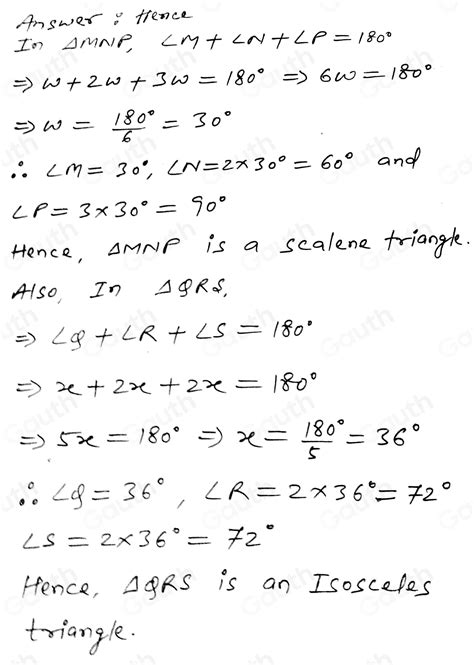 Answer : Hence
In △MNP, ∠M + ∠N + ∠P = 180°
⇒ w + 2w + 3w = 180° ⇒ 6w = 180°
⇒ w = 180°/6 = 30°
∴ ∠M = 30°, ∠N = 2×30° = 60° and
∠P = 3×30° = 90°
Hence, △MNP is a scalene triangle.
Also, In △QRS,
⇒ ∠Q + ∠R + ∠S = 180°
⇒ x + 2x + 2x = 180°
⇒ 5x = 180° ⇒ x = 180°/5 = 36°
∴ ∠Q = 36°, ∠R = 2×36° = 72°
∠S = 2×36° = 72°
Hence, △QRS is an Isosceles
triangle.